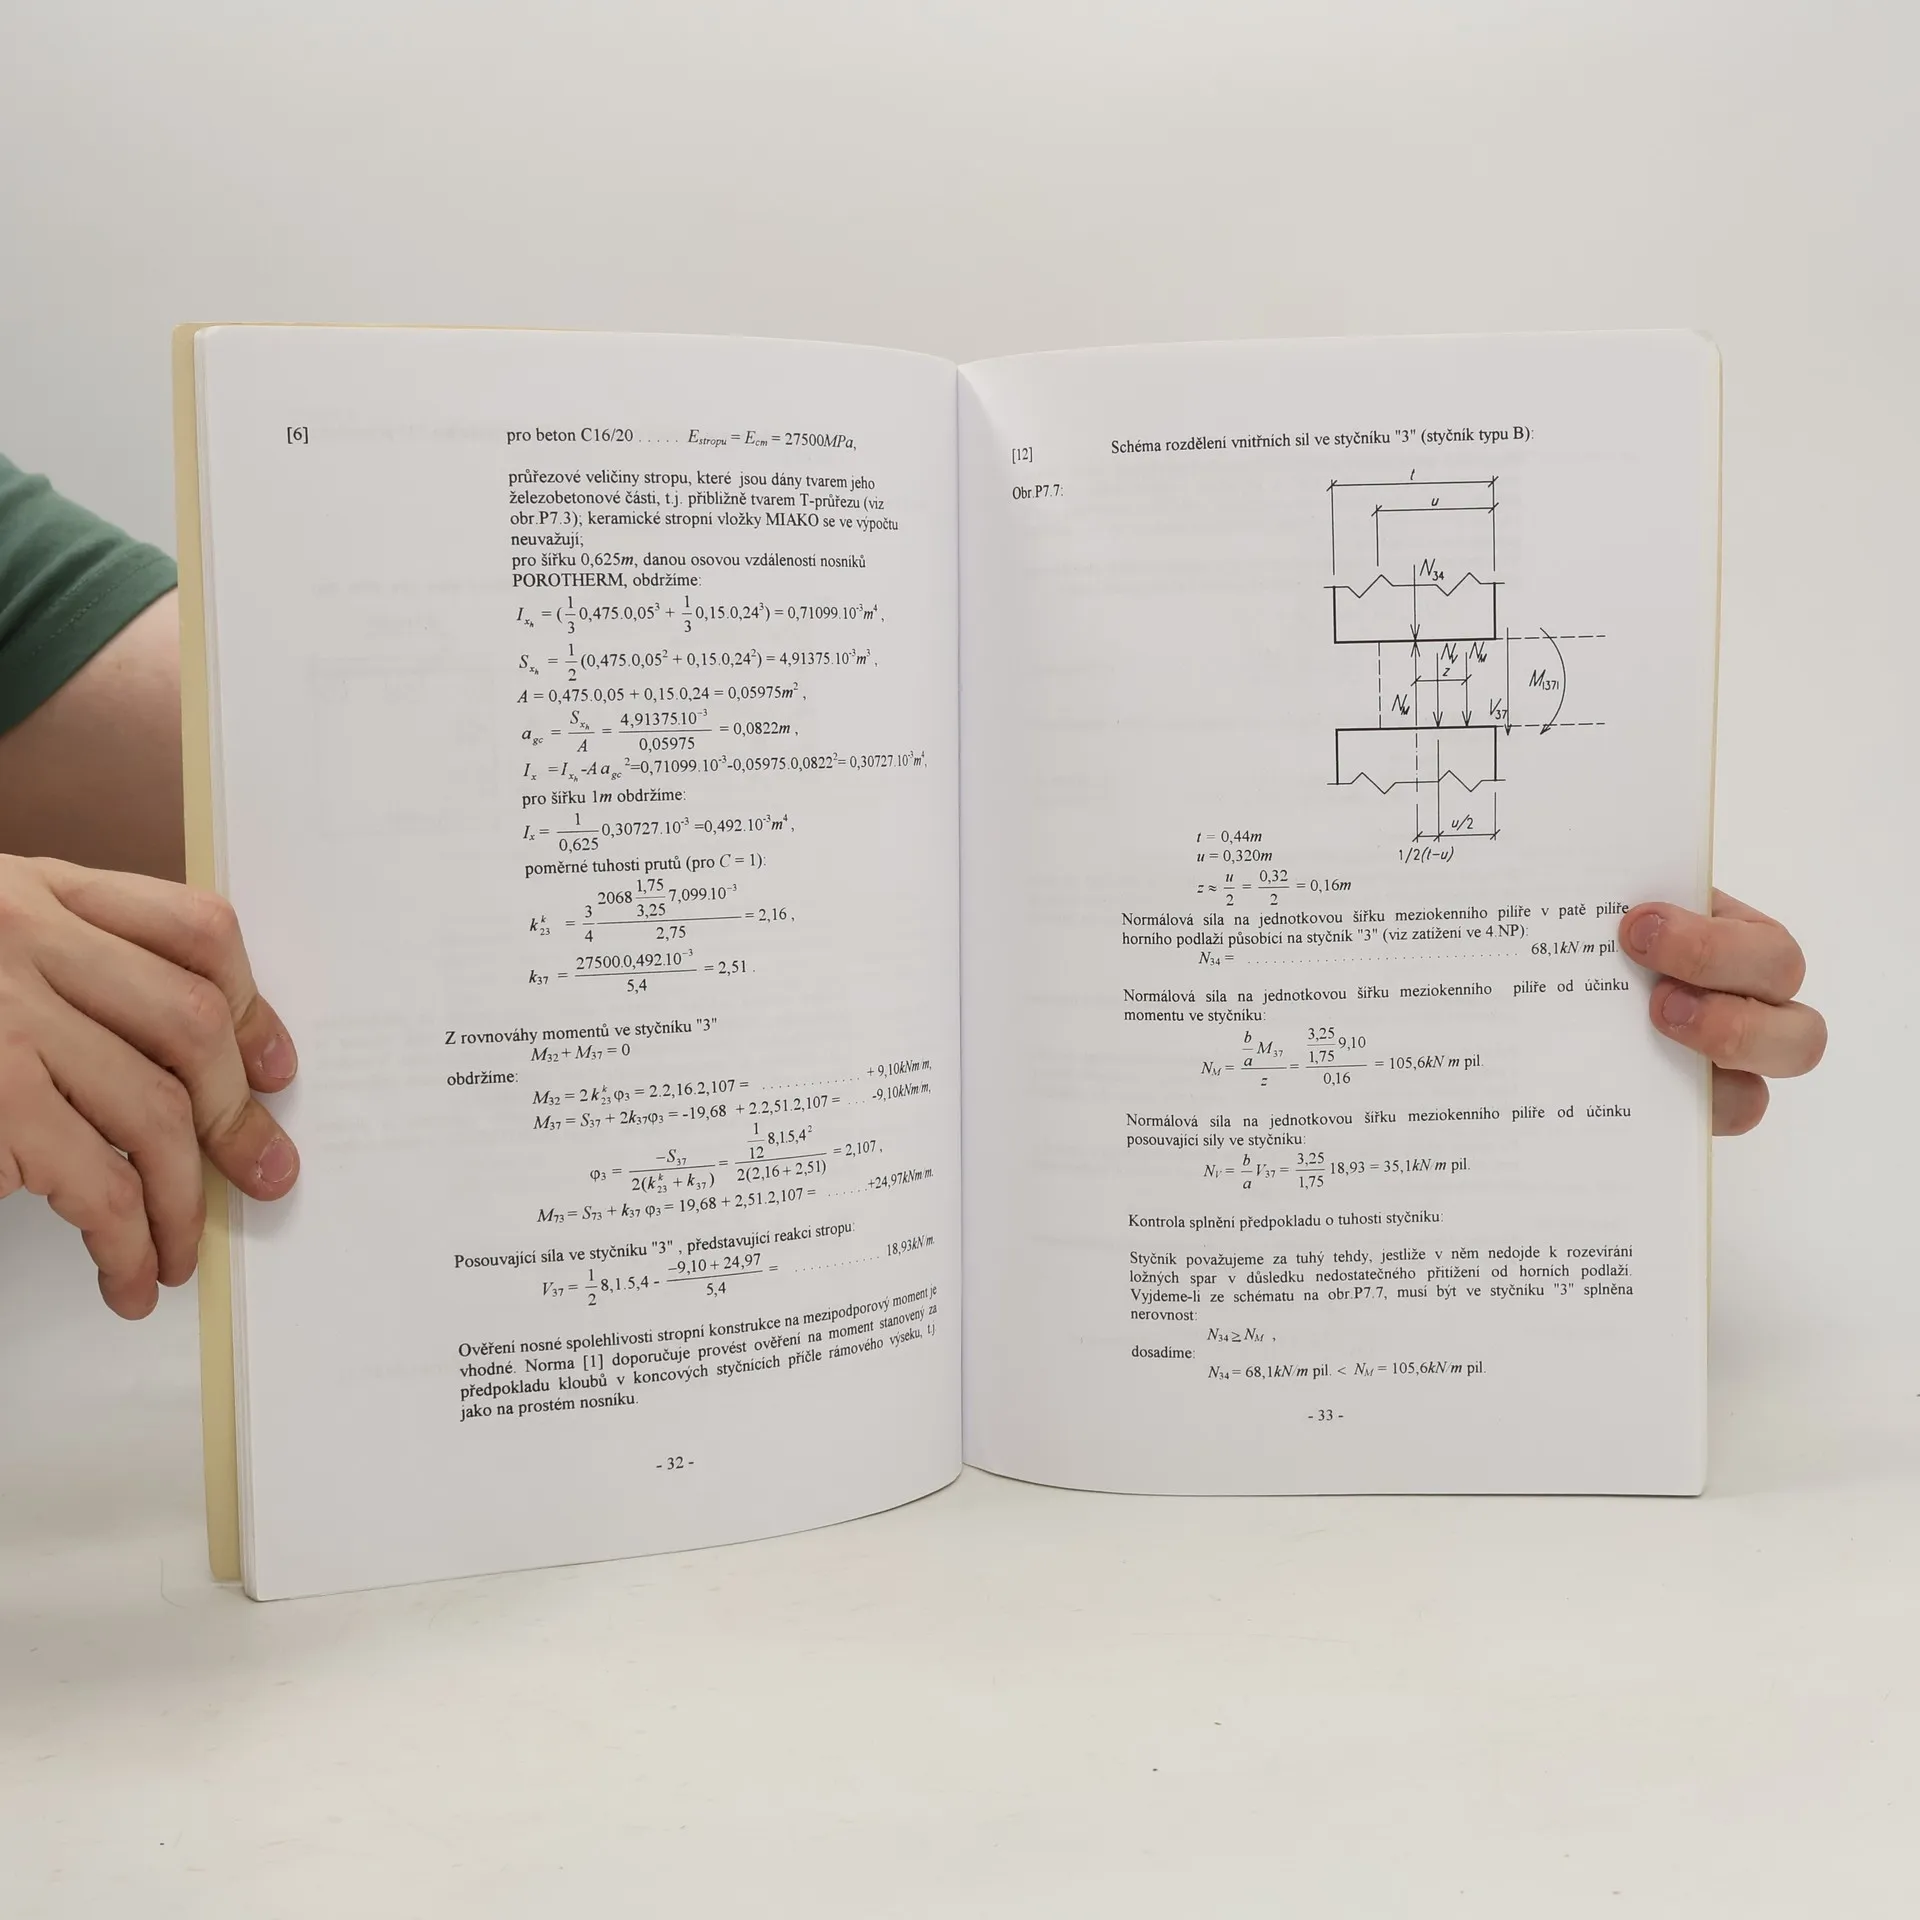 [6] pro beton C16/20 ..... E_stropu = E_cm = 27500MPa,
průřezové veličiny stropu, které jsou dány tvarem jeho
železobetonové části, t.j. přibližně tvarem T-průřezu (viz
obr.P7.3); keramické stropní vložky MIAKO se ve výpočtu
neuvažují;
pro šířku 0,625m, danou osovou vzdáleností nosníků
POROTHERM, obdržíme:
I_xh = (1/3 0,475.0,05³ + 1/3 0,15.0,24³) = 0,71099.10⁻³m⁴,
S_xh = 1/2 (0,475.0,05² + 0,15.0,24²) = 4,91375.10⁻³m³,
A = 0,475.0,05 + 0,15.0,24 = 0,05975m²,
a_gc = S_xh / A = 4,91375.10⁻³ / 0,05975 = 0,0822m,
I_x = I_xh - A a_gc² = 0,71099.10⁻³-0,05975.0,0822² = 0,30727.10⁻³m⁴,
pro šířku 1m obdržíme:
I_x = 1/0,625 0,30727.10⁻³ = 0,492.10⁻³m⁴,
poměrné tuhosti prutů (pro C = 1):
k^k_23 = 3/4 (2068 1,75/3,25 7,099.10⁻³) / 2,75 = 2,16,
k_37 = 27500.0,492.10⁻³ / 5,4 = 2,51.
Z rovnováhy momentů ve styčníku "3"
M_32 + M_37 = 0
obdržíme:
M_32 = 2 k^k_23 φ_3 = 2.2,16.2,107 = ............. + 9,10kNm/m,
M_37 = S_37 + 2k_37φ_3 = -19,68 + 2.2,51.2,107 = ... -9,10kNm/m,
φ_3 = -S_37 / 2(k^k_23 + k_37) = 1/12 8,1.5,4² / 2(2,16 + 2,51) = 2,107,
M_73 = S_73 + k_37 φ_3 = 19,68 + 2,51.2,107 = ...... +24,97kNm/m.
Posouvající síla ve styčníku "3" , představující reakci stropu:
V_37 = 1/2 8,1.5,4 - (-9,10 + 24,97) / 5,4 = ............ 18,93kN/m.
Ověření nosné spolehlivosti stropní konstrukce na mezipodporový moment je
vhodné. Norma [1] doporučuje provést ověření na moment stanovený za
předpokladu kloubů v koncových styčnících příčle rámového výseku, t.j
jako na prostém nosníku.
- 32 -
[12] Schéma rozdělení vnitřních sil ve styčníku "3" (styčník typu B):
Obr.P7.7:
t
u
N_34
N_V N_M
z
M_|37|
N_M
V_37
u/2
1/2(t-u)
t = 0,44m
u = 0,320m
z ≈ u/2 = 0,32/2 = 0,16m
Normálová síla na jednotkovou šířku meziokenního pilíře v patě pilíře
horního podlaží působící na styčník "3" (viz zatížení ve 4.NP):
N_34 = .............................. 68,1kN/m pil.
Normálová síla na jednotkovou šířku meziokenního pilíře od účinku
momentu ve styčníku:
N_M = (b/a M_37) / z = (3,25/1,75 9,10) / 0,16 = 105,6kN/m pil.
Normálová síla na jednotkovou šířku meziokenního pilíře od účinku
posouvající síly ve styčníku:
N_V = b/a V_37 = 3,25/1,75 18,93 = 35,1kN/m pil.
Kontrola splnění předpokladu o tuhosti styčníku:
Styčník považujeme za tuhý tehdy, jestliže v něm nedojde k rozevírání
ložných spar v důsledku nedostatečného přitížení od horních podlaží.
Vyjdeme-li ze schématu na obr.P7.7, musí být ve styčníku "3" splněna
nerovnost:
N_34 ≥ N_M ,
dosadíme:
N_34 = 68,1kN/m pil. < N_M = 105,6kN/m pil.
- 33 -